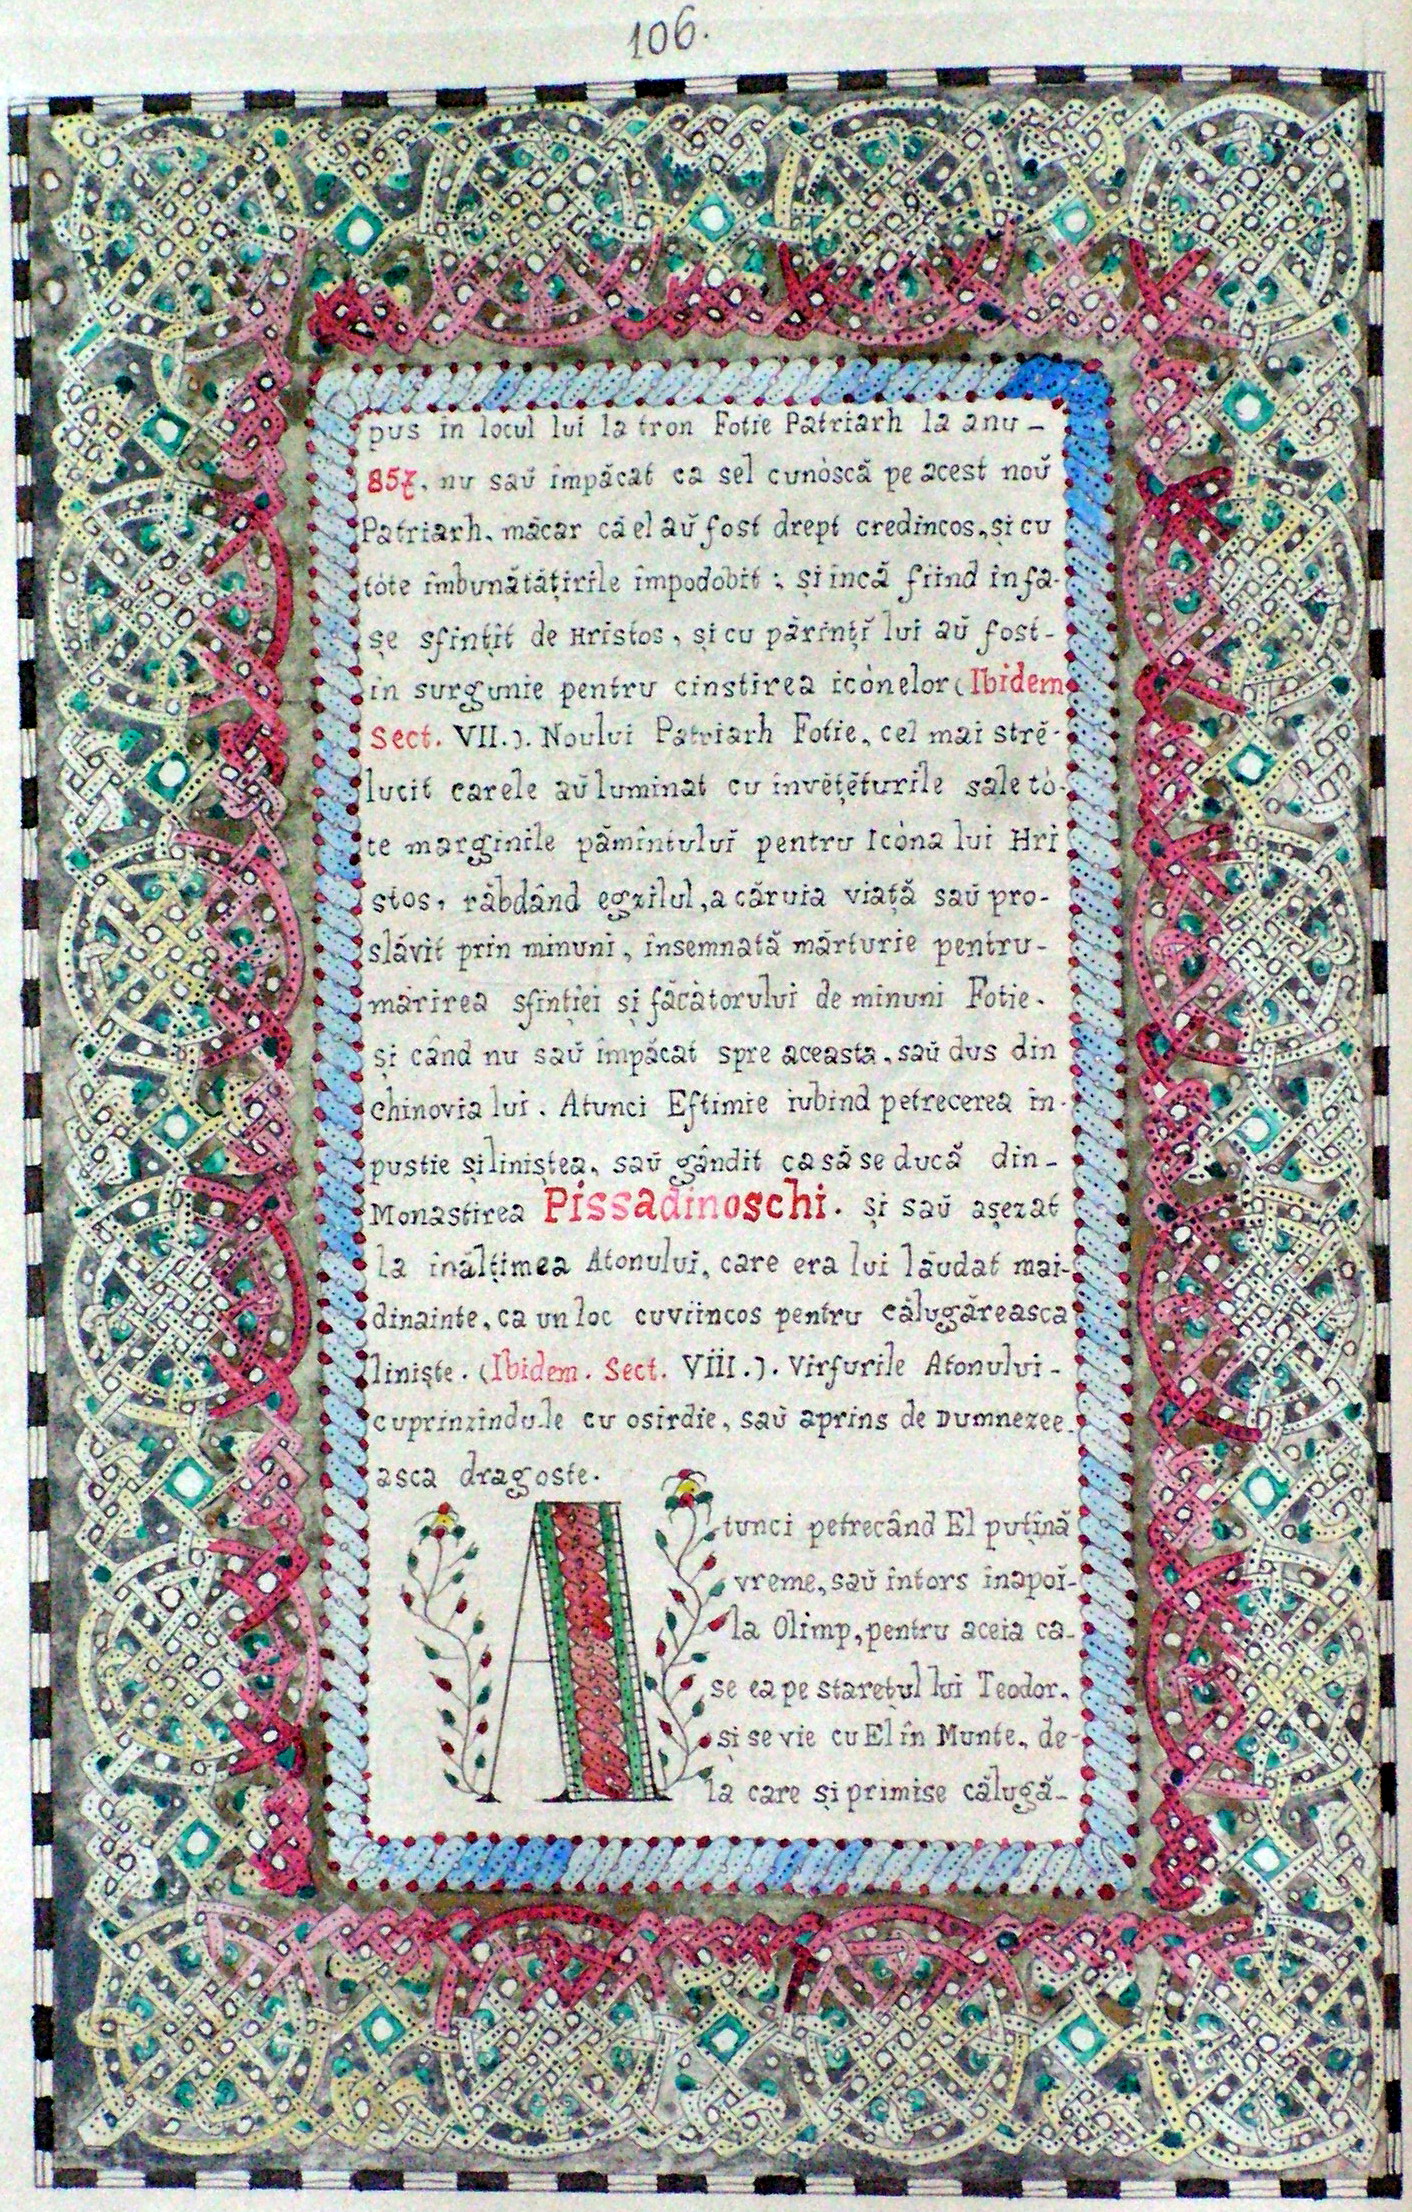 106.
pus in locul lui la tron Fotie Patriarh la anu-
857. nu saŭ împăcat ca sel cunòscă pe acest noŭ
Patriarh, măcar că el aŭ fost drept credincos, și cu
tòte îmbunătățirile împodobit ; și încă fiind în fa-
șe sfințit de Hristos, și cu părințĭ lui aŭ fost-
în surgunie pentru cinstirea icònelor (Ibidem
Sect. VII.). Noului Patriarh Fotie, cel mai strĕ-
lucit carele aŭ luminat cu învĕțĕturile sale tò-
te marginile pămîntuluĭ pentru Icòna lui Hri
stos, răbdând egzilul, a căruia viață saŭ pro-
slăvit prin minuni, însemnată mărturie pentru-
mărirea sfinției și făcătorului de minuni Fotie.
și când nu saŭ împăcat spre aceasta, saŭ dus din
chinovia lui. Atunci Eftimie iubind petrecerea în-
pustie și liniștea, saŭ gândit ca să se ducă din-
Monastirea Pissadinoschi. și saŭ așezat
la înălțimea Atonuluĭ, care era lui lăudat mai-
dinainte, ca un loc cuviincos pentru călugăreasca
liniște. (Ibidem. Sect. VIII.). Vîrfurile Atonului-
cuprinzîndu-le cu osîrdie, saŭ aprins de Dumnezee-
asca dragoste.
Atunci petrecând El puțină
vreme, saŭ întors înapoĭ-
la Olimp, pentru aceia ca-
se ea pe starețul lui Teodor.
și se vie cu El în Munte, de-
la care și primise călugă-